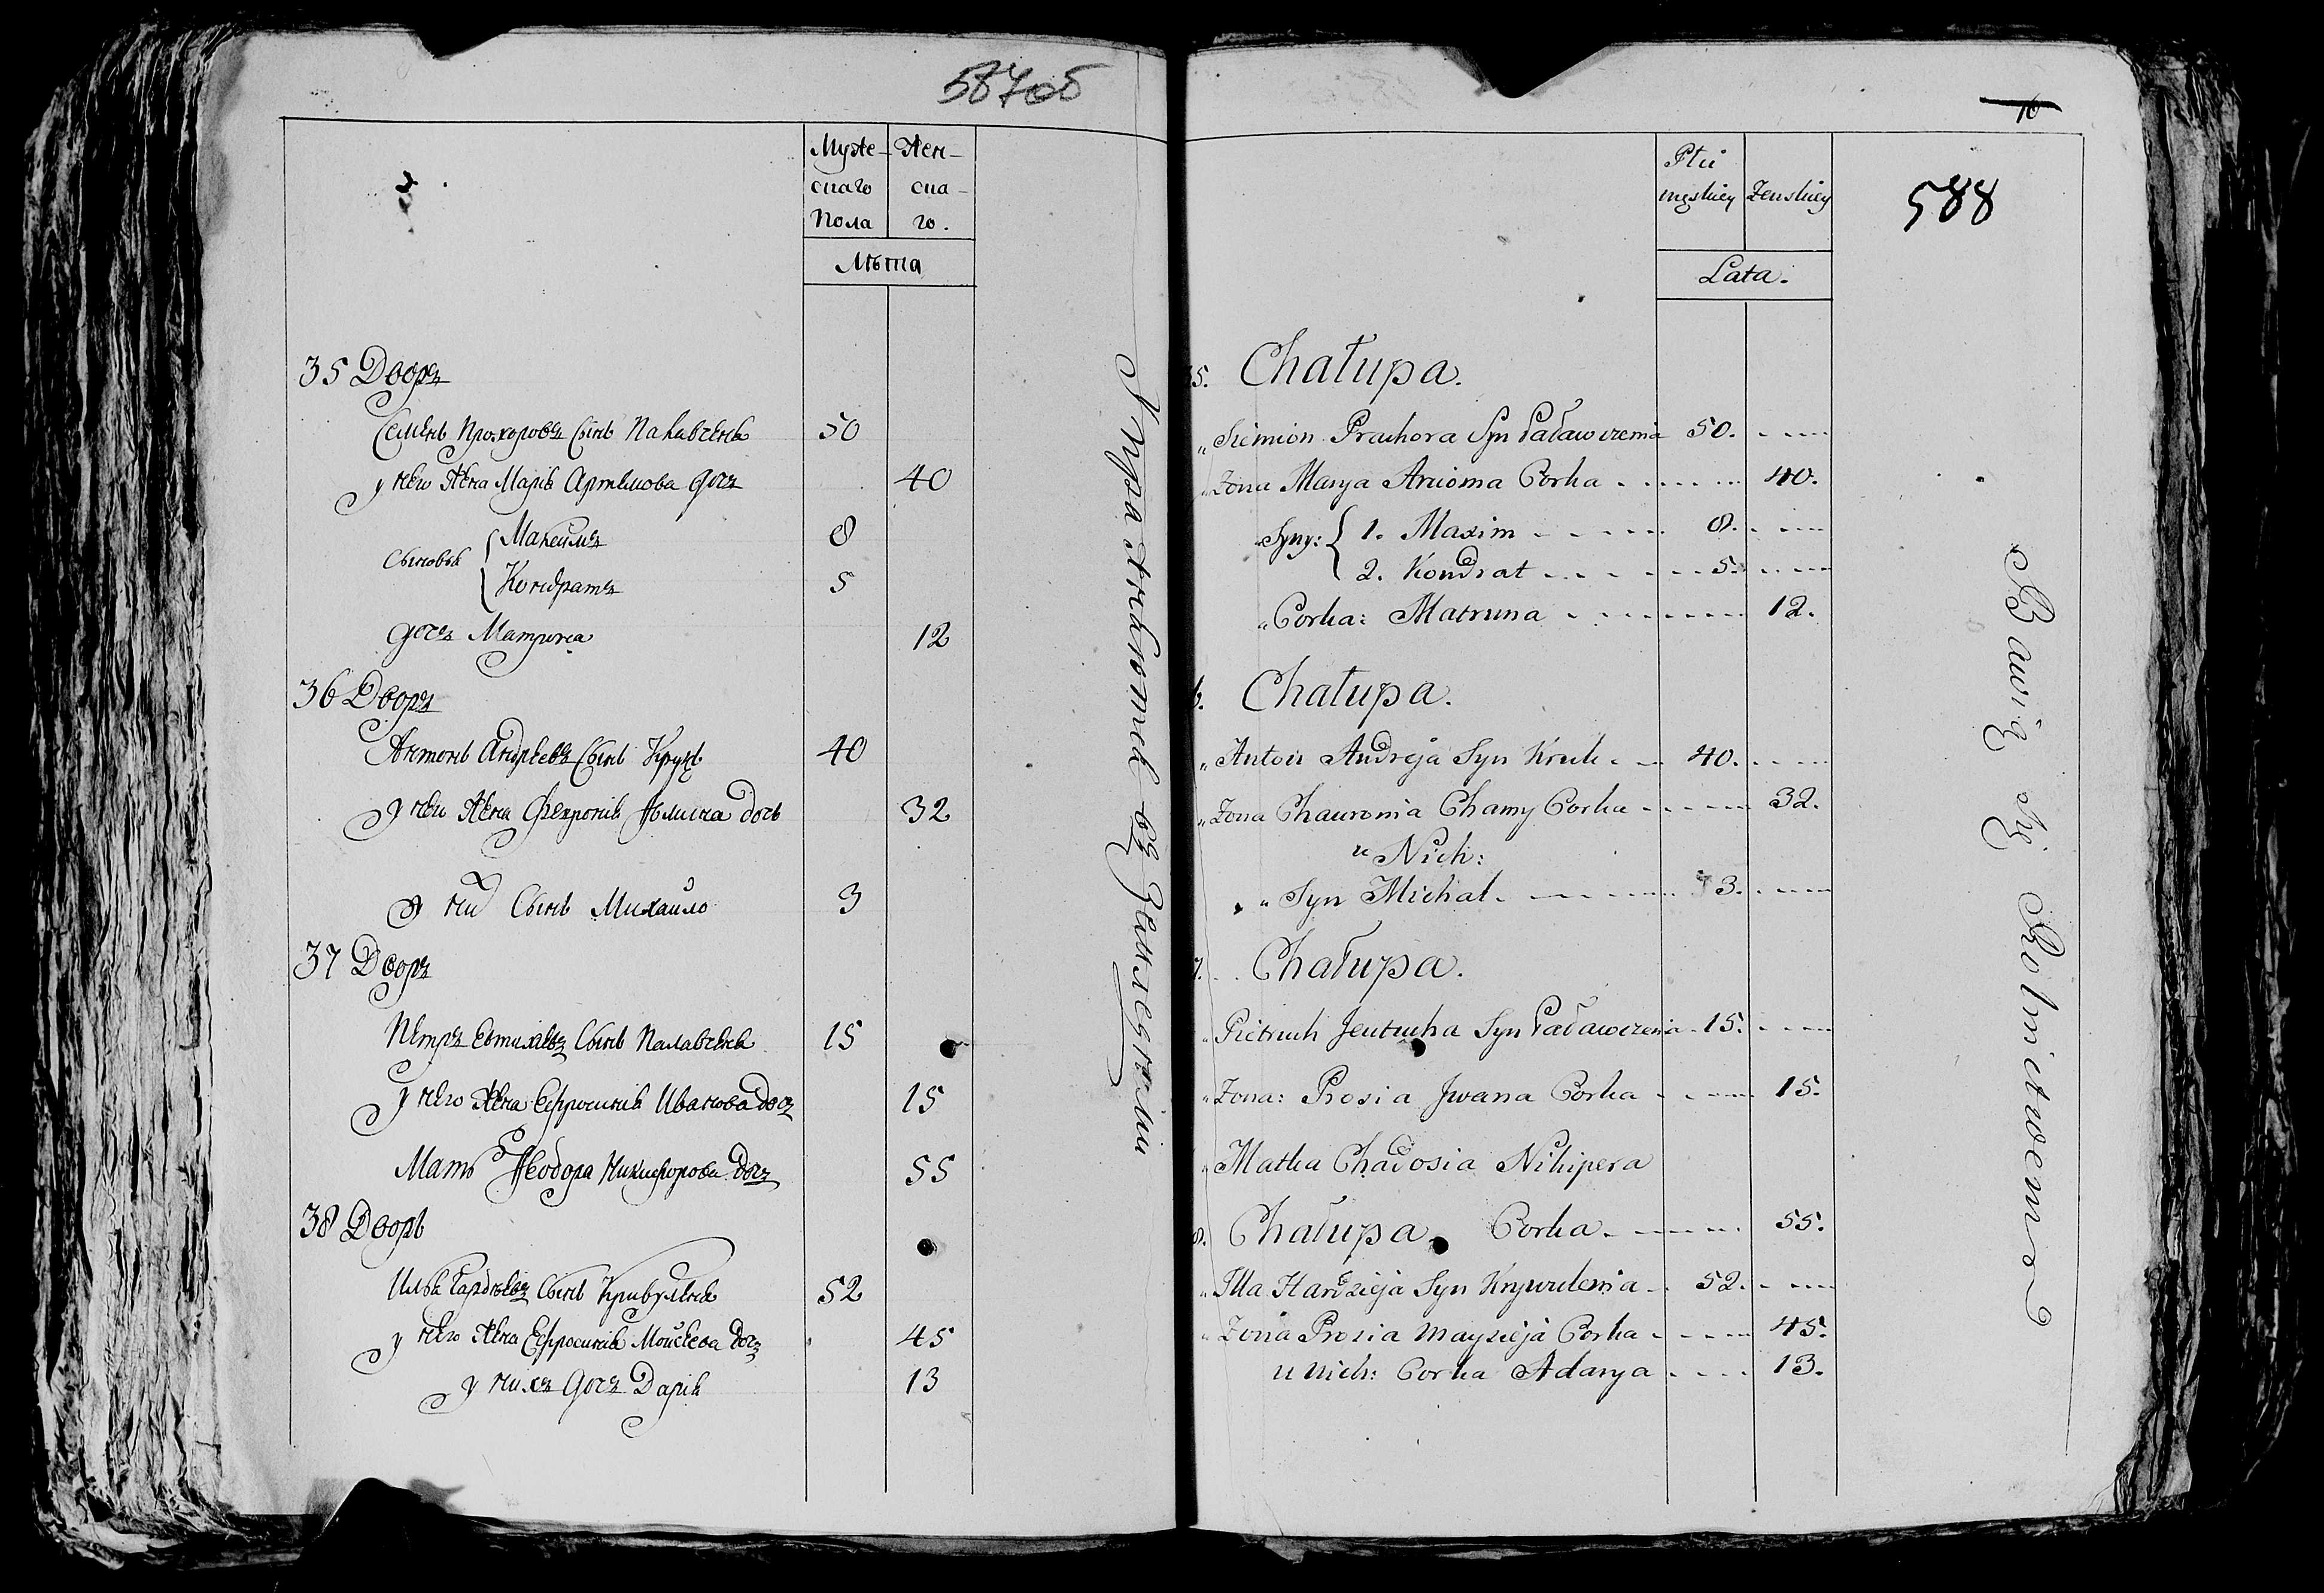 587об
Муже- Жен-
скаго ска-
Пола го.
Лѣта
35 Дворъ
Семенъ Прохоровъ Сынъ Палавченя 50
у него Жена Марія Артемова дочь 40
Сыновья { Максимъ 8
Кондратъ 5
дочь Матруна 12
36 Дворъ
Антонъ Андреевъ Сынъ Крукъ 40
у него Жена Февронія Фомина дочь 32
у них Сынъ Михайло 3
37 Дворъ
Петръ Евтихіевъ Сынъ Палавченя 15
у него Жена Ефросинія Иванова дочь 15
Мать Феодора Никифорова дочь 55
38 Дворъ
Илья Гардѣевъ Сынъ Кривуленя 52
у него Жена Ефросинія Моисеева дочь 45
у нихъ дочь Дарія 13
Упражняются въ Земледѣліи
10
588
Płci
męskiey Żenskiey
Lata.
35. Chałupa.
„ Siemion Prachora Syn Paławczenia 50.
„ Żona Marya Arcioma Corka 40.
„ Syny: { 1. Maxim 8.
2. Kondrat 5.
„ Corka: Matruna 12.
6. Chałupa.
„ Anton Andreja Syn Kruk 40.
„ Żona Chauronia Chamy Corka 32.
u Nich:
„ Syn Michał 3.
7. Chałupa.
„ Pietruk Jeutucha Syn Paławczenia 15.
„ Żona: Prosia Jwana Corka 15.
„ Matka Chadosia Nikipera
8. Chałupa. Corka 55.
„ Illa Hardzieja Syn Krywulenia 52.
„ Żona Prosia Mayzieja Corka 45.
u nich: Corka Adarya 13.
Bawią się Rolnictwem